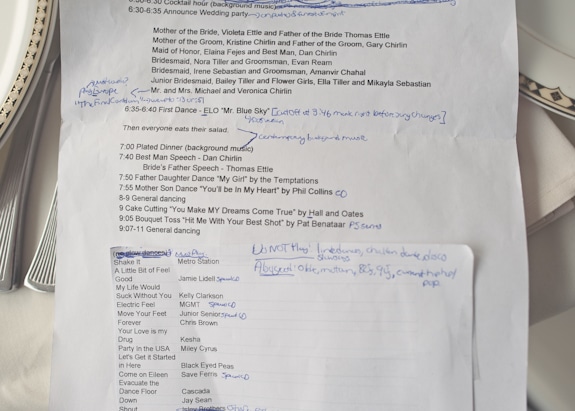 6:30 Cocktail hour (background music)
6:30-6:35 Announce Wedding party
Mother of the Bride, Violeta Ettle and Father of the Bride Thomas Ettle
Mother of the Groom, Kristine Chirlin and Father of the Groom, Gary Chirlin
Maid of Honor, Elaina Fejes and Best Man, Dan Chirlin
Bridesmaid, Nora Tiller and Groomsman, Evan Ream
Bridesmaid, Irene Sebastian and Groomsman, Amanvir Chahal
Junior Bridesmaid, Bailey Tiller and Flower Girls, Ella Tiller and Mikayla Sebastian
Mr. and Mrs. Michael and Veronica Chirlin
6:35-6:40 First Dance - ELO "Mr. Blue Sky" [cut off at 3:46 mark right before song changes]
Then everyone eats their salad.
contemporary background music
7:00 Plated Dinner (background music)
7:40 Best Man Speech - Dan Chirlin
Bride's Father Speech - Thomas Ettle
7:50 Father Daughter Dance "My Girl" by the Temptations
7:55 Mother Son Dance "You'll be In My Heart" by Phil Collins CD
8-9 General dancing
9 Cake Cutting "You Make MY Dreams Come True" by Hall and Oates
9:05 Bouquet Toss "Hit Me With Your Best Shot" by Pat Benataar
9:07-11 General dancing
Must Play
Do NOT Play: linedances, chicken dance, disco
Shake It Metro Station
A Little Bit of Feel
Good Jamie Lidell
My Life Would
Suck Without You Kelly Clarkson
Electric Feel MGMT
Move Your Feet Junior Senior
Forever Chris Brown
Your Love is my
Drug Kesha
Party In the USA Miley Cyrus
Let's Get it Started
in Here Black Eyed Peas
Come on Eileen Save Ferris
Evacuate the
Dance Floor Cascada
Down Jay Sean
Shout Isley Brothers